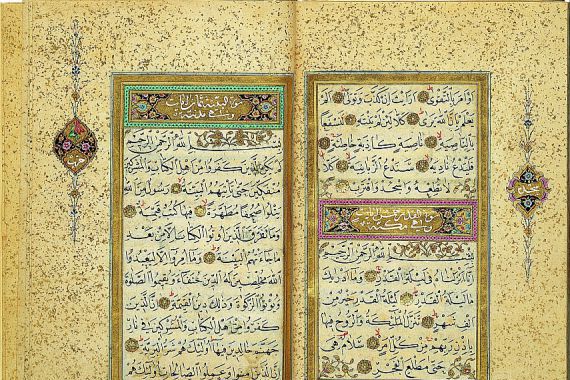 او امر بالتقوى ارايت ان كذب وتولى الم
يعلم بان الله يرى كلا لئن لم ينته لنسفعا
بالناصية ناصية كاذبة خاطئة
فليدع ناديه سندع الزبانية كلا
لا تطعه واسجد واقترب
سجدة
وهي مكية
بسم الله الرحمن الرحيم
انا انزلناه في ليلة القدر وما ادريك
ما ليلة القدر ليلة القدر خير من
الف شهر تنزل الملئكة والروح فيها
باذن ربهم من كل امر سلام هي
حتى مطلع الفجر
وهي مدنية
بسم الله الرحمن الرحيم
لم يكن الذين كفروا من اهل الكتاب والمشركين
منفكين حتى تاتيهم البينة رسول من الله
يتلوا صحفا مطهرة فيها كتب قيمة
وما تفرق الذين اوتوا الكتاب الا من بعد
ما جاءتهم البينة وما امروا الا ليعبدوا
الله مخلصين له الدين حنفاء ويقيموا الصلوة
ويؤتوا الزكوة وذلك دين القيمة ان الذين
كفروا من اهل الكتاب والمشركين في نار
جهنم خالدين فيها اولئك هم شر البرية ان
الذين امنوا وعملوا الصالحات اولئك
حزب